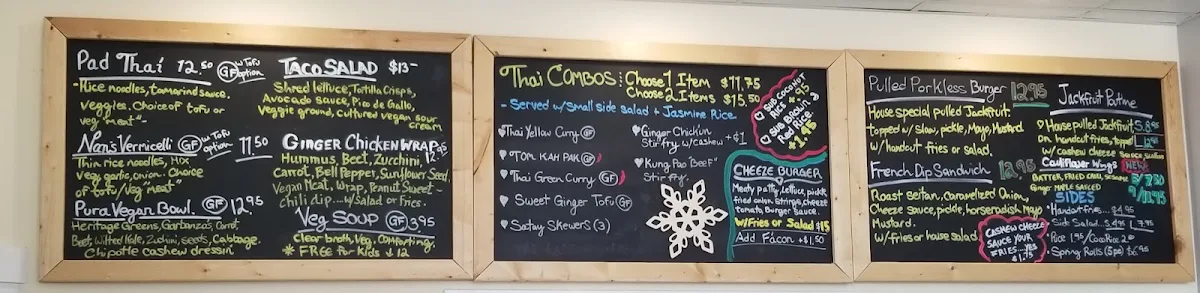 Pad Thai 12.50 GF w Tofu option
Rice noodles, tamarind sauce,
veggies. Choice of tofu or
veg "meat"-
Nan's Vermicelli GF w Tofu option 11.50
Thin rice noodles, Mix
veg, garlic, onion. Choice
of tofu/veg "meat"
Pura Vegan Bowl. GF 12.95
Heritage Greens, Garbanzos, Carrot,
Beet, Wilted Kale, Zuchini, seeds, Cabbage.
Chipotle cashew dressin'
Taco Salad $13-
Shred lettuce, Tortilla Crisps,
Avocado sauce, Pico de Gallo,
Veggie ground, cultured vegan sour
cream
Ginger Chicken Wrap 12.95
Hummus, Beet, Zucchini,
Carrot, Bell Pepper, Sunflower Seed,
Vegan Meat, Wrap, Peanut Sweet-
chili dip. w/Salad or fries.
Veg Soup GF 3.95
Clear broth, Veg. Comforting.
* FREE for kids 12
Thai Combos: Choose 1 Item $11.75
Choose 2 Items $15.50
- Served w/small side salad + Jasmine Rice.
Sub Coconut
Rice +.95
Sub Brown &
Red Rice
+1.95
Thai Yellow Curry GF
Tom Kah Pak GF
Thai Green Curry GF
Sweet Ginger Tofu GF
Satay Skewers (3)
Ginger Chick'un
Stir fry w/cashew +$1
Kung Pao "Beef"
Stir fry.
Cheeze Burger
Meaty patty, lettuce, pickle
fried onion strings, cheeze
Tomato, Burger Sauce.
w/Fries or Salad $15
Add Fácon +$1.50
Pulled Porkless Burger 12.95
House special pulled Jackfruit
topped w/slaw, pickle, Mayo, Mustard
w/handcut fries or salad.
French Dip Sandwich 12.95
Roast seitan, caramelized Onion,
Cheeze Sauce, pickle, horseradish mayo
Mustard.
w/fries or house salad
Cashew Cheeze
Sauce your
fries...yes
$1.75
Jackfruit Poutine
House pulled Jackfruit
on handcut fries, topped
w/cashew cheeze sauce,
Cauliflower Wings NEW
Batter, fried cauli,
Ginger Maple Sauced
SIDES
Handcut fries... $4.95
Side Salad...
Rice 1.95/
Spring Rolls (3pc) $6.95